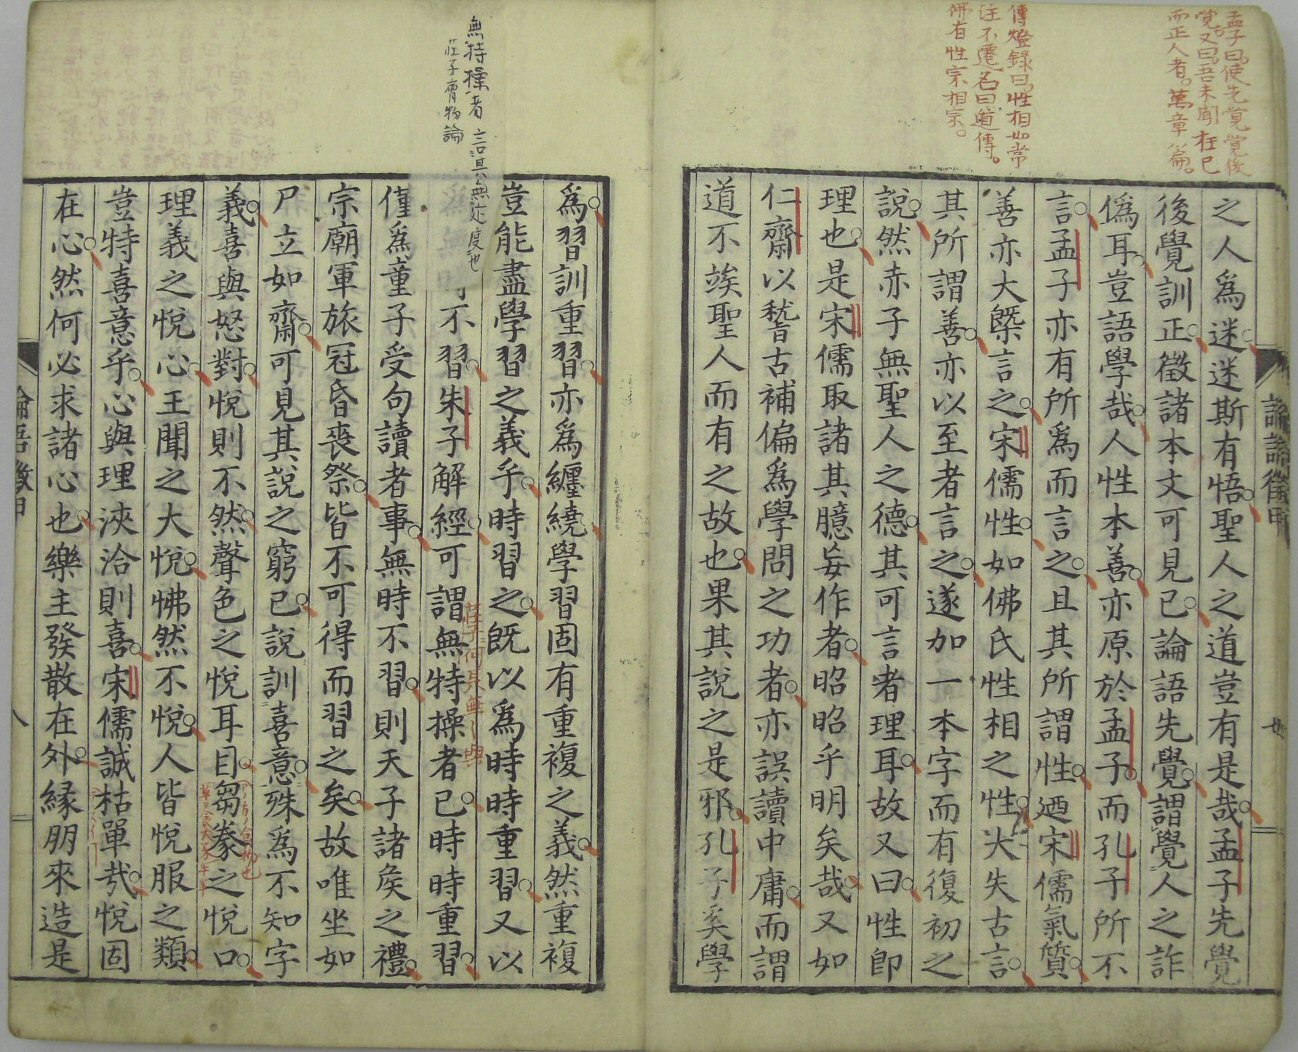 孟子曰使先覺覺後
覺又曰吾未聞枉己
而正人者萬章篇
傳燈錄曰性相如常
注不遷名曰道傳
佛有性宗相宗
之人爲迷迷斯有悟聖人之道豈有是哉孟子先覺
後覺訓正徵諸本文可見已論語先覺謂覺人之詐
僞耳豈語學哉人性本善亦原於孟子而孔子所不
言孟子亦有所爲而言之且其所謂性廼宋儒氣質
善亦大槩言之宋儒性如佛氏性相之性大失古言
其所謂善亦以至者言之遂加一本字而有復初之
說然赤子無聖人之德其可言者理耳故又曰性即
理也是宋儒取諸其臆妄作者昭昭乎明矣哉又如
仁齋以稽古補偏爲學問之功者亦誤讀中庸而謂
道不竢聖人而有之故也果其說之是邪孔子奚學
論語徵甲
無特操者言其無定度也
莊子齊物論
爲習訓重習亦爲纏繞學習固有重複之義然重複
豈能盡學習之義乎時習之既以爲時時重習又以
不習朱子解經可謂無特操者已時時重習
僅爲童子受句讀者事無時不習則天子諸矦之禮
宗廟軍旅冠昏喪祭皆不可得而習之矣故唯坐如
尸立如齋可見其說之窮已說訓喜意殊爲不知字
義喜與怒對悅則不然聲色之悅耳目芻豢之悅口
理義之悅心王聞之大悅怫然不悅人皆悅服之類
豈特喜意乎心與理浹洽則喜宋儒誠枯單哉悅固
在心然何必求諸心也樂主發散在外緣朋來造是
論語徵甲
八